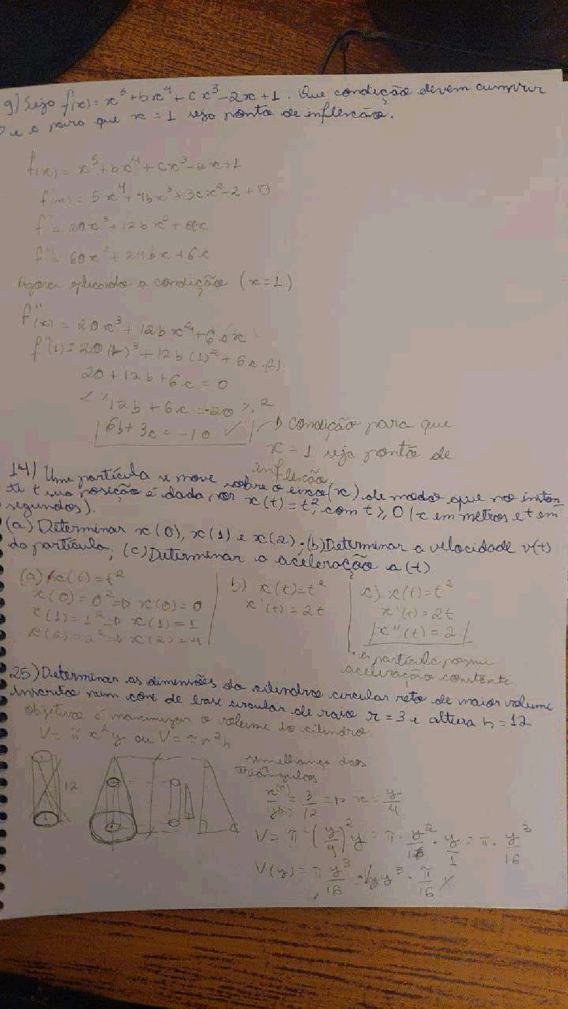 9) Seja f(x) = x⁵ + bx⁴ + cx³ - 2x + 1. Que condição devem cumprir
b e c para que x = 1 seja ponto de inflexão.
f(x) = x⁵ + bx⁴ + cx³ - 2x + 1
f'(x) = 5x⁴ + 4bx³ + 3cx² - 2 + 0
f'' = 20x³ + 12bx² + 6cx
f''' = 60x² + 24bx + 6c
Agora aplicando a condição (x = 1)
f''(x) = 20x³ + 12bx² + 6cx
f''(1) = 20(1)³ + 12b(1)² + 6c(1)
20 + 12b + 6c = 0
12b + 6c = -20
6b + 3c = -10 ✓ condição para que
x = 1 seja ponto de
inflexão
14) Uma partícula se move sobre o eixo (x) de modo que no instan
te t sua posição é dada por x(t) = t², com t ≥ 0 (x em metros e t em
segundos).
(a) Determinar x(0), x(1) e x(2); (b) Determinar a velocidade v(t)
da partícula, (c) Determinar a aceleração a(t)
(a) x(t) = t²
x(0) = 0² ⇒ x(0) = 0
x(1) = 1² ⇒ x(1) = 1
x(2) = 2² ⇒ x(2) = 4
b) x(t) = t²
x'(t) = 2t
c) x(t) = t²
x'(t) = 2t
x''(t) = 2
a partícula possui
aceleração constante
25) Determinar as dimensões do cilindro circular reto de maior volume
inscrito num cone de base circular de raio r = 3 e altura h = 12
Objetivo é maximizar o volume do cilindro
V = πx²y ou V = πr²h
12
semelhança dos
triângulos
= 3/12 ⇒ x = y/4
V = π · (y/4)² y = π · y²/16 · y/1 = π · y³/16
V(y) = π y³/16 = y³ · π/16